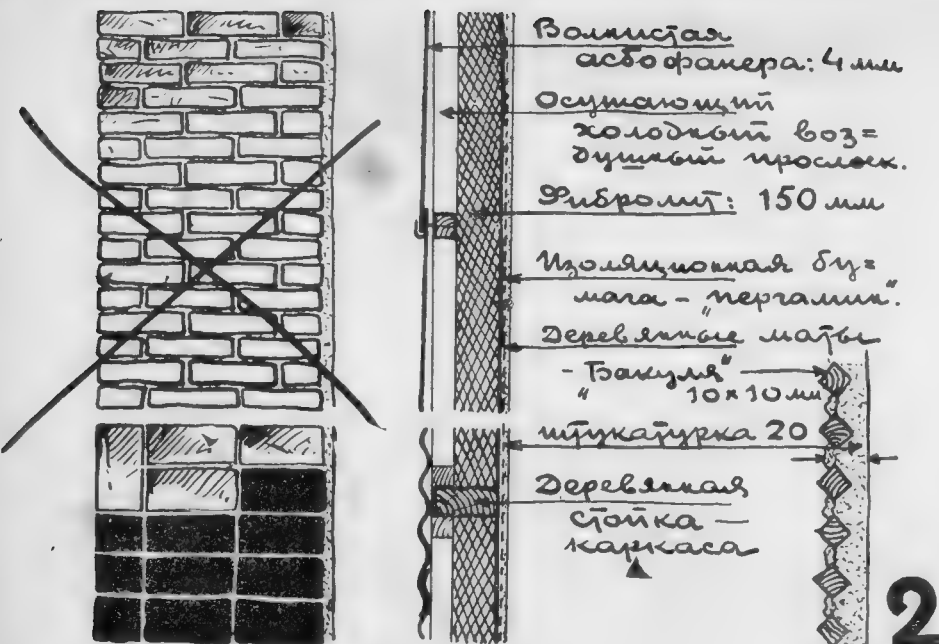 Волнистая
асбофанера: 4 мм
Осушающий
холодный воз=
душный прослоек.
Фибролит: 150 мм
Изоляционная бу=
мага – „пергамин“.
Деревянные маты
– „Бакуля“
10×10 мм
штукатурка 20
Деревянная
стойка –
каркаса
2